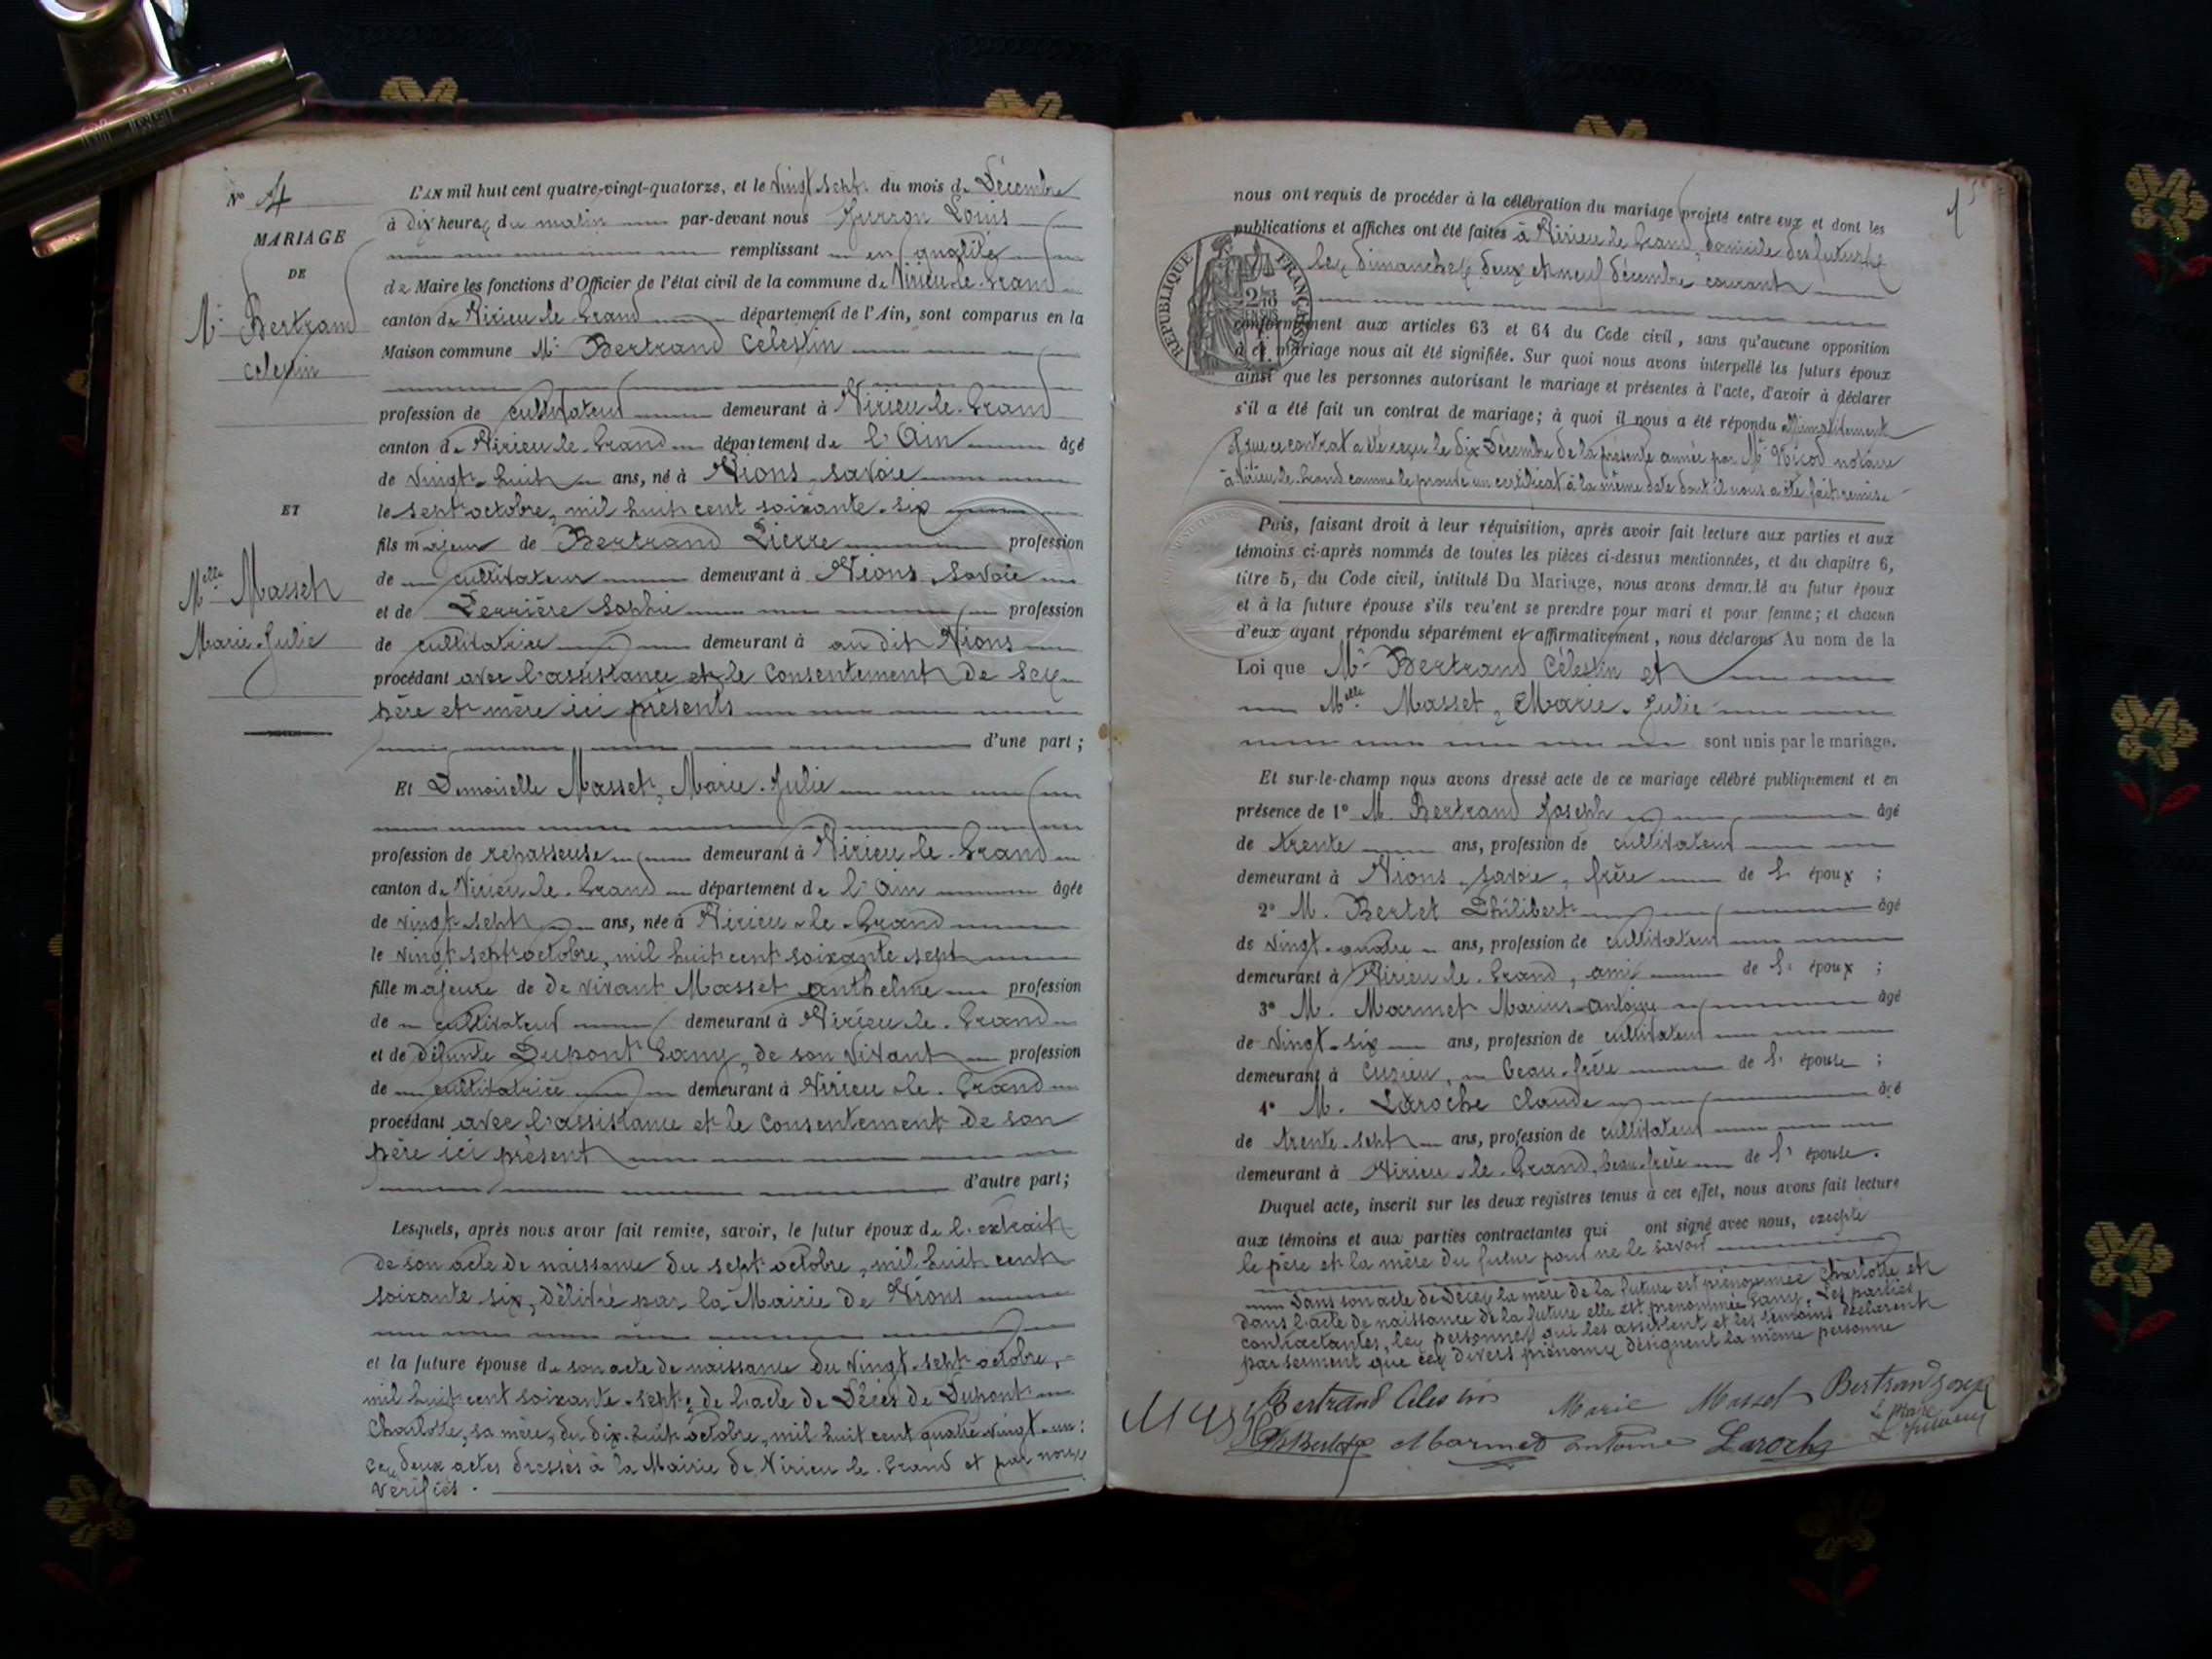 N° 4
MARIAGE
DE
Mr Bertrand
Celestin
ET
Melle Masset
Marie-Julie
L'AN mil huit cent quatre-vingt-quatorze, et le vingt-sept du mois de Décembre
à dix heures du matin par-devant nous Louis
remplissant en qualité
de Maire les fonctions d'Officier de l'état civil de la commune de Virieu-le-Grand
canton de Virieu le Grand département de l'Ain, sont comparus en la
Maison commune Mr Bertrand Celestin
profession de cultivateur demeurant à Virieu-le-Grand
canton de Virieu-le-Grand département de l'Ain âgé
de vingt-huit ans, né à Nions, savoie
le sept octobre, mil huit cent soixante-six
fils majeur de Bertrand Pierre profession
de cultivateur demeurant à Nions, Savoie
et de Perrière Sophie profession
de cultivatrice demeurant à au dit Nions
procédant avec l'assistance et le consentement de ses
père et mère ici présents
d'une part ;
Et Demoiselle Masset, Marie-Julie
profession de repasseuse demeurant à Virieu-le-Grand
canton de Virieu-le-Grand département de l'Ain âgée
de vingt-sept ans, née à Virieu-le-Grand
le vingt-sept octobre, mil huit cent soixante-sept
fille majeure de de vivant Masset Anthelme profession
de cultivateur demeurant à Virieu-le-Grand
et de défunte Dupont Fany, de son vivant profession
de cultivatrice demeurant à Virieu-le-Grand
procédant avec l'assistance et le consentement de son
père ici présent
d'autre part;
Lesquels, après nous avoir fait remise, savoir, le futur époux de l'extrait
de son acte de naissance du sept octobre, mil huit cent
soixante six, délivré par la Mairie de Nions
et la future épouse de son acte de naissance du vingt-sept octobre,
mil huit cent soixante-sept, de l'acte de Décès de Dupont
Charlotte, sa mère, du dix-huit octobre, mil huit cent quatre-vingt-un:
ces deux actes dressés à la Mairie de Virieu-le-Grand et par nous
vérifiés.
nous ont requis de procéder à la célébration du mariage projeté entre eux et dont les
publications et affiches ont été faites à Virieu le Grand, domicile des futurs
les dimanches deux et neuf décembre courant
RÉPUBLIQUE FRANÇAISE
conformément aux articles 63 et 64 du Code civil, sans qu'aucune opposition
à ce mariage nous ait été signifiée. Sur quoi nous avons interpellé les futurs époux
ainsi que les personnes autorisant le mariage et présentes à l'acte, d'avoir à déclarer
s'il a été fait un contrat de mariage; à quoi il nous a été répondu affirmativement
et que ce contrat a été reçu le dix Décembre de la présente année par Me Nicod notaire
à Virieu-le-Grand comme le prouve un certificat à la même date dont il nous a été fait remise
Puis, faisant droit à leur réquisition, après avoir fait lecture aux parties et aux
témoins ci-après nommés de toutes les pièces ci-dessus mentionnées, et du chapitre 6,
titre 5, du Code civil, intitulé Du Mariage, nous avons demandé au futur époux
et à la future épouse s'ils veulent se prendre pour mari et pour femme; et chacun
d'eux ayant répondu séparément et affirmativement, nous déclarons Au nom de la
Loi que Mr Bertrand Célestin et
Melle Masset, Marie-Julie
sont unis par le mariage.
Et sur-le-champ nous avons dressé acte de ce mariage célébré publiquement et en
présence de 1° M. Bertrand Joseph âgé
de trente ans, profession de cultivateur
demeurant à Nions, Savoie, frère de l' époux ;
2° M. Bertet Philibert âgé
de vingt-quatre ans, profession de cultivateur
demeurant à Virieu-le-Grand, ami de l' époux ;
3° M. Marmet Marius-Antoine âgé
de vingt-six ans, profession de cultivateur
demeurant à Cuzieu, beau-frère de l' épouse ;
4° M. Laroche Claude âgé
de trente-sept ans, profession de cultivateur
demeurant à Virieu-le-Grand, beau-frère de l' épouse.
Duquel acte, inscrit sur les deux registres tenus à cet effet, nous avons fait lecture
aux témoins et aux parties contractantes qui ont signé avec nous, excepté
le père et la mère du futur pour ne le savoir
Dans son acte de Décès la mère de la future est prénommée Charlotte et
dans l'acte de naissance de la future elle est prénommée Fany. Les parties
contractantes, les personnes qui les assistent et les témoins déclarent
par serment que ces divers prénoms désignent la même personne
Bertrand Celestin Marie Masset Bertrand Joseph
Marmet antoine Laroche
Le Maire